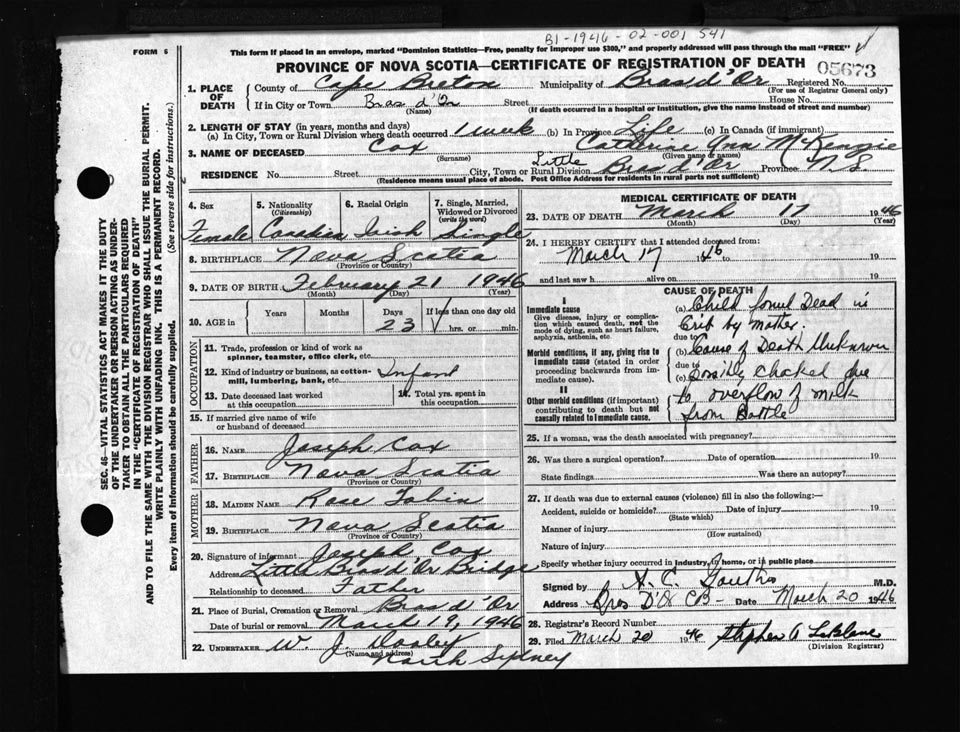 B1-1946-02-001541
FORM 6
This form if placed in an envelope, marked "Dominion Statistics—Free, penalty for improper use $300," and properly addressed will pass through the mail "FREE"
PROVINCE OF NOVA SCOTIA—CERTIFICATE OF REGISTRATION OF DEATH
05673
1. PLACE OF DEATH
County of Cape Breton Municipality of Bras d'Or Registered No.
(For use of Registrar General only)
If in City or Town Bras d'Or Street House No.
(Name) (If death occurred in a hospital or institution, give the name instead of street and number)
2. LENGTH OF STAY (in years, months and days)
(a) In City, Town or Rural Division where death occurred 1 week (b) In Province Life (c) In Canada (if immigrant)
3. NAME OF DECEASED Cox Catherine Ann McKenzie
(Surname) (Given name or names)
RESIDENCE No. Street City, Town or Rural Division Little Bras d'Or Province N.S.
(Residence means usual place of abode. Post Office Address for residents in rural parts not sufficient)
SEC. 46—VITAL STATISTICS ACT MAKES IT THE DUTY
OF THE UNDERTAKER OR PERSON ACTING AS UNDER-
TAKER TO OBTAIN ALL THE PARTICULARS REQUIRED
IN THE "CERTIFICATE OF REGISTRATION OF DEATH"
AND TO FILE THE SAME WITH THE DIVISION REGISTRAR WHO SHALL ISSUE THE BURIAL PERMIT.
WRITE PLAINLY WITH UNFADING INK. THIS IS A PERMANENT RECORD.
Every item of Information should be carefully supplied.
(See reverse side for instructions.)
4. Sex
Female
5. Nationality
(Citizenship)
Canadian
6. Racial Origin
Irish
7. Single, Married, Widowed or Divorced
(write the word)
Single
8. BIRTHPLACE Nova Scotia
(Province or Country)
9. DATE OF BIRTH February 21 1946
(Month) (Day) (Year)
10. AGE in
Years Months Days If less than one day old
23 hrs. or min.
OCCUPATION
11. Trade, profession or kind of work as
spinner, teamster, office clerk, etc.
12. Kind of industry or business, as cotton-
mill, lumbering, bank, etc. Infant
13. Date deceased last worked
at this occupation
14. Total yrs. spent in
this occupation
15. If married give name of wife
or husband of deceased
FATHER
16. NAME Joseph Cox
17. BIRTHPLACE Nova Scotia
(Province or Country)
MOTHER
18. MAIDEN NAME Rose Tobin
19. BIRTHPLACE Nova Scotia
(Province or Country)
20. Signature of informant Joseph Cox
Address Little Bras d'Or Bridge
Relationship to deceased Father
21. Place of Burial, Cremation or Removal Bras d'Or
Date of burial or removal March 19, 1946
22. UNDERTAKER W. J. Dooley
(Name and address)
North Sydney
MEDICAL CERTIFICATE OF DEATH
23. DATE OF DEATH March 17 1946
(Month) (Day) (Year)
24. I HEREBY CERTIFY that I attended deceased from:
March 17 1946 to 19
and last saw h alive on 19
CAUSE OF DEATH
I
Immediate cause
Give disease, injury or complica-
tion which caused death, not the
mode of dying, such as heart failure,
asphyxia, asthenia, etc.
(a) Child found Dead in
Crib by Mother.
due to
Morbid conditions, if any, giving rise to
immediate cause (stated in order
proceeding backwards from im-
mediate cause).
(b) Cause of Death Unknown
due to
(c) Possibly Choked due
to overflow of milk
from Bottle
II
Other morbid conditions (if important)
contributing to death but not
causally related to immediate cause.
25. If a woman, was the death associated with pregnancy?
26. Was there a surgical operation? Date of operation 19
State findings Was there an autopsy?
27. If death was due to external causes (violence) fill in also the following:—
Accident, suicide or homicide? Date of injury 19
(State which)
Manner of injury
(How sustained)
Nature of injury
Specify whether injury occurred in industry, in home, or in public place
Signed by M.D.
Address Bras D'Or CB Date March 20 1946
28. Registrar's Record Number
29. Filed March 20 1946 Stephen A LeBlanc
(Division Registrar)